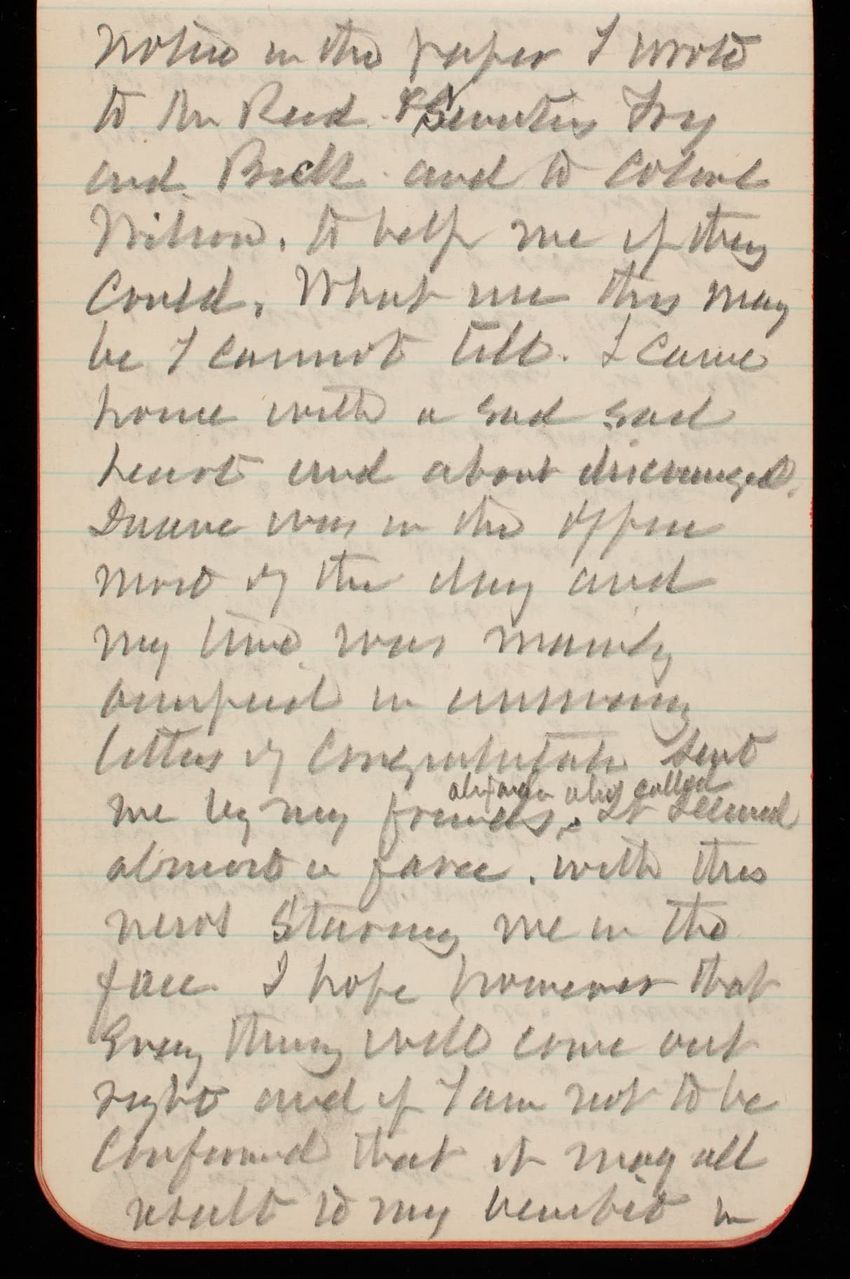 notice in the paper I wrote
to Mr Reed & Senators Fry
and Beck and to Colonel
Wilson, to help me if they
could, What use this may
be I cannot tell. I came
home with a sad sad
heart and about discouraged.
Duane was in the office
most of the day and
my time was mainly
occupied in answering
letters of congratulation sent
alexander also called
me by my friends, It seemed
almost a farce, with this
news staring me in the
face I hope however that
Every thing will come out
right and if I am not to be
Confirmed that it may all
result to my benefit in